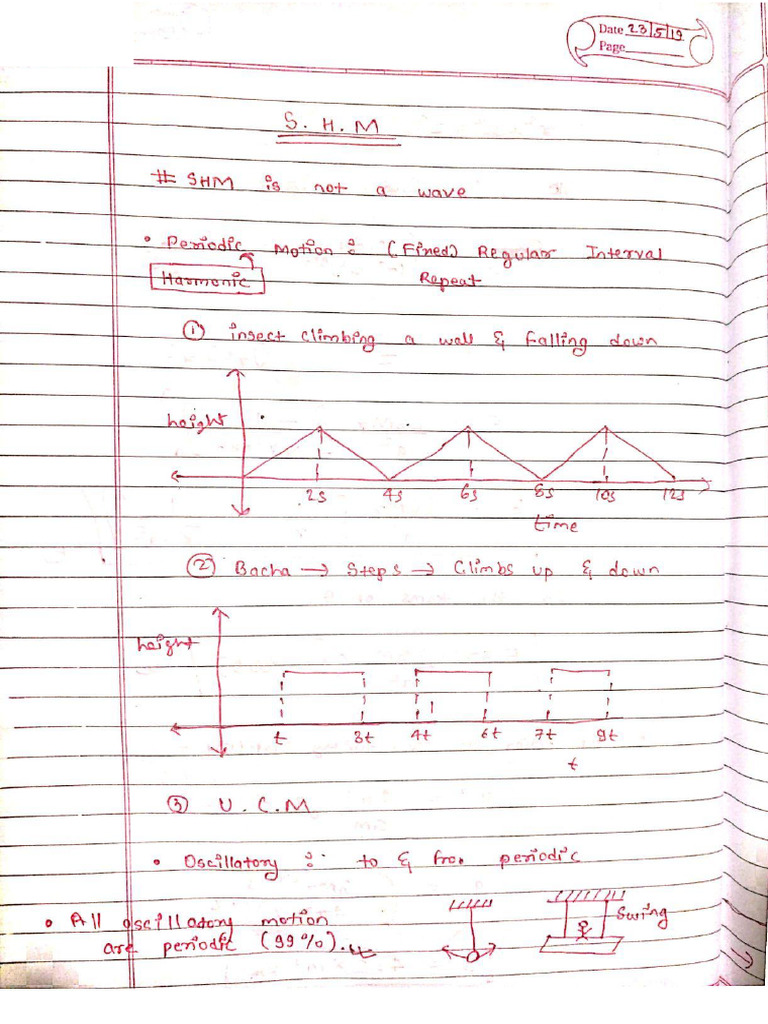 Date 23/5/19
Page
S. H. M
# SHM is not a wave
• Periodic Motion : (Fined) Regular Interval
Harmonic Repeat
① insect climbing a wall & falling down
height
2s 4s 6s 8s 10s 12s
time
② Bacha → steps → Climbs up & down
height
t 3t 4t 6t 7t 9t
t
③ U. C. M
• Oscillatory :- to & fro. periodic
• All oscillatory motion
are periodic (99%).
Swing